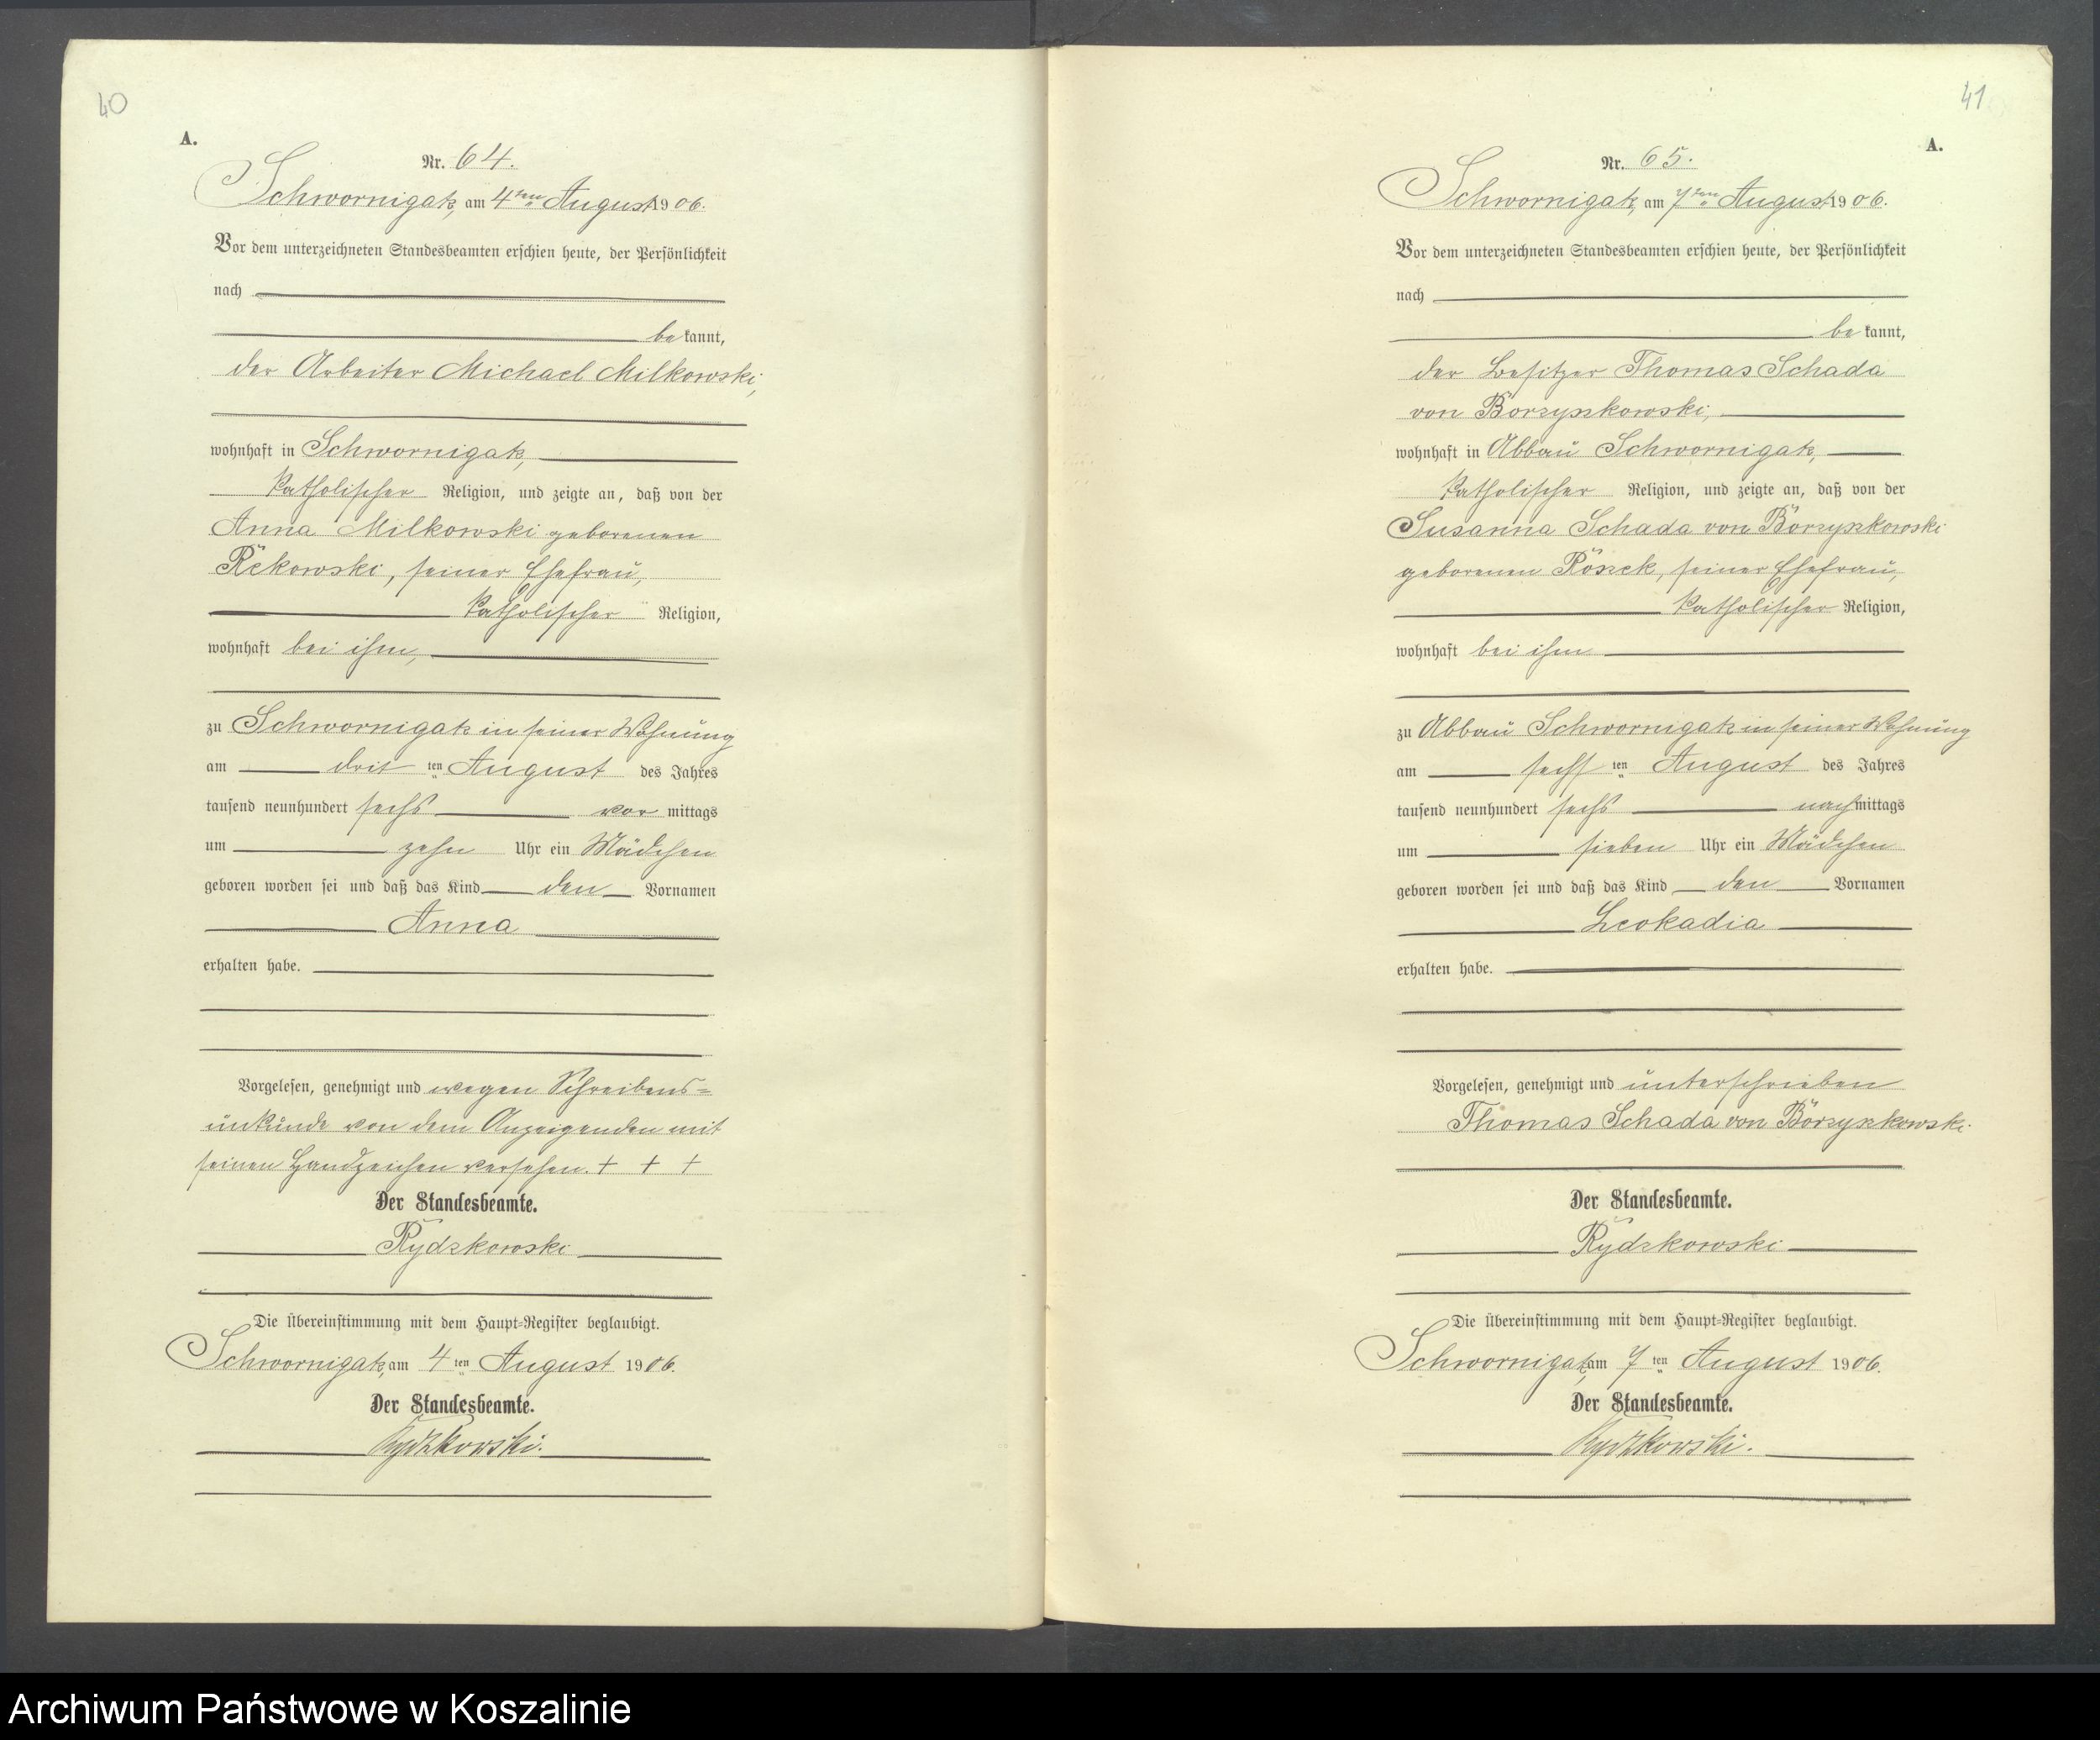 40
A.
Nr. 64.
Schwornigatz, am 4ten August 1906.
Vor dem unterzeichneten Standesbeamten erschien heute, der Persönlichkeit
nach
bekannt,
der Arbeiter Michael Milkowski,
wohnhaft in Schwornigatz,
katholischer Religion, und zeigte an, daß von der
Anna Milkowski geborenen
Rekowski, seiner Ehefrau,
katholischer Religion,
wohnhaft bei ihm,
zu Schwornigatz in seiner Wohnung
am drit ten August des Jahres
tausend neunhundert sechs vor mittags
um zehn Uhr ein Mädchen
geboren worden sei und daß das Kind den Vornamen
Anna
erhalten habe.
Vorgelesen, genehmigt und wegen Schreibens=
unkunde von dem Anzeigenden mit
seinen Handzeichen versehen. + + +
Der Standesbeamte.
Rydzkowski
Die Übereinstimmung mit dem Haupt=Register beglaubigt.
Schwornigatz, am 4 ten August 1906.
Der Standesbeamte.
Rydzkowski.
41
A.
Nr. 65.
Schwornigatz, am 7ten August 1906.
Vor dem unterzeichneten Standesbeamten erschien heute, der Persönlichkeit
nach
bekannt,
der Besitzer Thomas Schada
von Borzyszkowski,
wohnhaft in Abbau Schwornigatz,
katholischer Religion, und zeigte an, daß von der
Susanna Schada von Borzyszkowski
geborenen seiner Ehefrau,
katholischer Religion,
wohnhaft bei ihm
zu Abbau Schwornigatz in seiner Wohnung
am sechs ten August des Jahres
tausend neunhundert sechs nachmittags
um sieben Uhr ein Mädchen
geboren worden sei und daß das Kind den Vornamen
Leokadia
erhalten habe.
Vorgelesen, genehmigt und unterschrieben
Thomas Schada von Borzyszkowski.
Der Standesbeamte.
Rydzkowski
Die Übereinstimmung mit dem Haupt=Register beglaubigt.
Schwornigatz, am 7 ten August 1906.
Der Standesbeamte.
Rydzkowski.
Archiwum Państwowe w Koszalinie